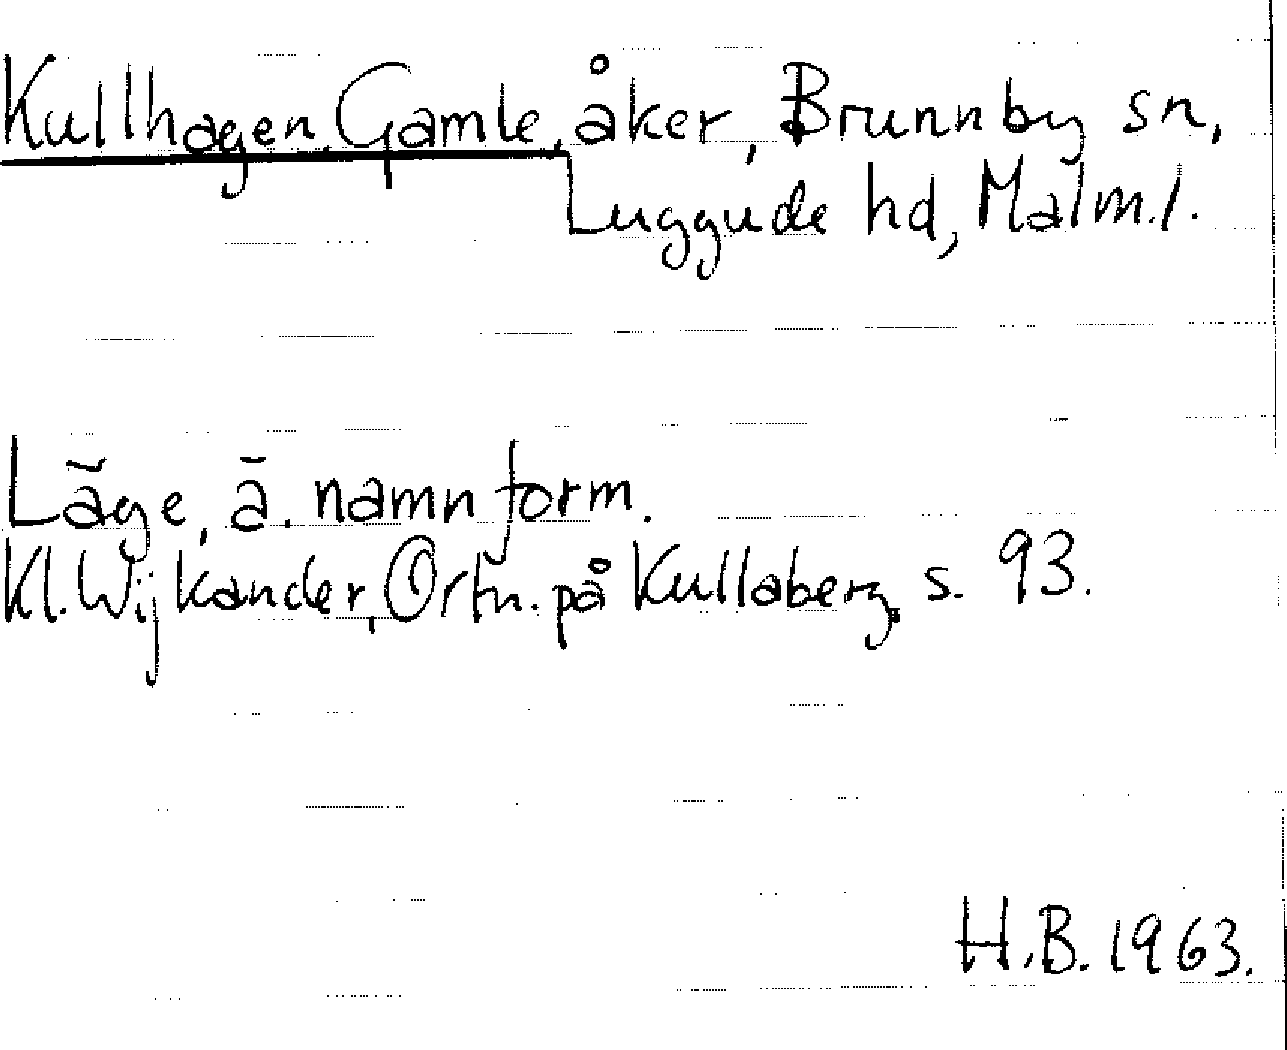 Kullhagen, Gamle, åker, Brunnby sn,
Luggude hd, Malm.l.
Läge, ä. namnform.
Kl. Wijkander, Ortn. på Kullaberg, s. 93.
H.B. 1963.